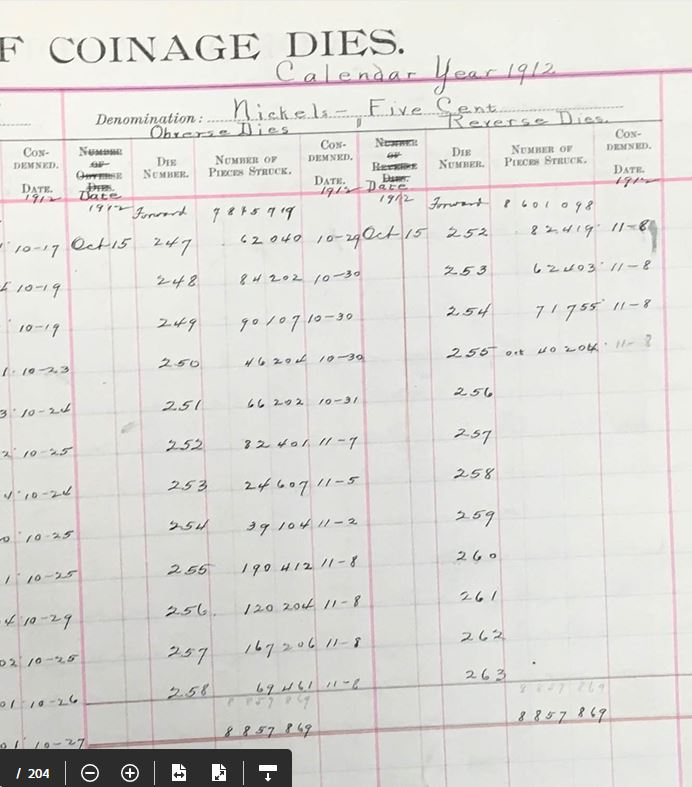 F COINAGE DIES.
Calendar Year 1912
Denomination: Nickels - Five Cent
Obverse Dies Reverse Dies.
CON-DEMNED. NUMBER OF OBVERSE DIES. DIE NUMBER. NUMBER OF PIECES STRUCK. CON-DEMNED. NUMBER OF REVERSE DIES. DIE NUMBER. NUMBER OF PIECES STRUCK. CON-DEMNED.
DATE. Date DATE. Date DATE.
1912 1912 1912 1912 1912
Forward 7875719 Forward 8601098
10-17 Oct 15 247 62040 10-29 Oct 15 252 82419 11-8
10-19 248 84202 10-30 253 62403 11-8
10-19 249 90107 10-30 254 71755 11-8
10-23 250 46204 10-30 255 oct 40204 11-8
10-24 251 66202 10-31 256
10-25 252 82401 11-7 257
10-24 253 24607 11-5 258
10-25 254 39104 11-2 259
10-25 255 190412 11-8 260
10-29 256 120204 11-8 261
10-25 257 167206 11-8 262
10-26 258 69461 11-8 263
8857869 8857869
10-27 8857869 8857869
/ 204